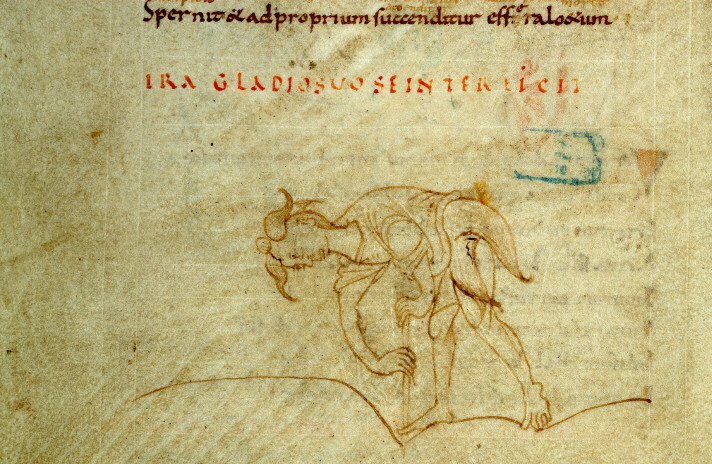 Spernit & ad proprium succenditur effera loetum
IRA GLADIO SUO SE INTERFICIT